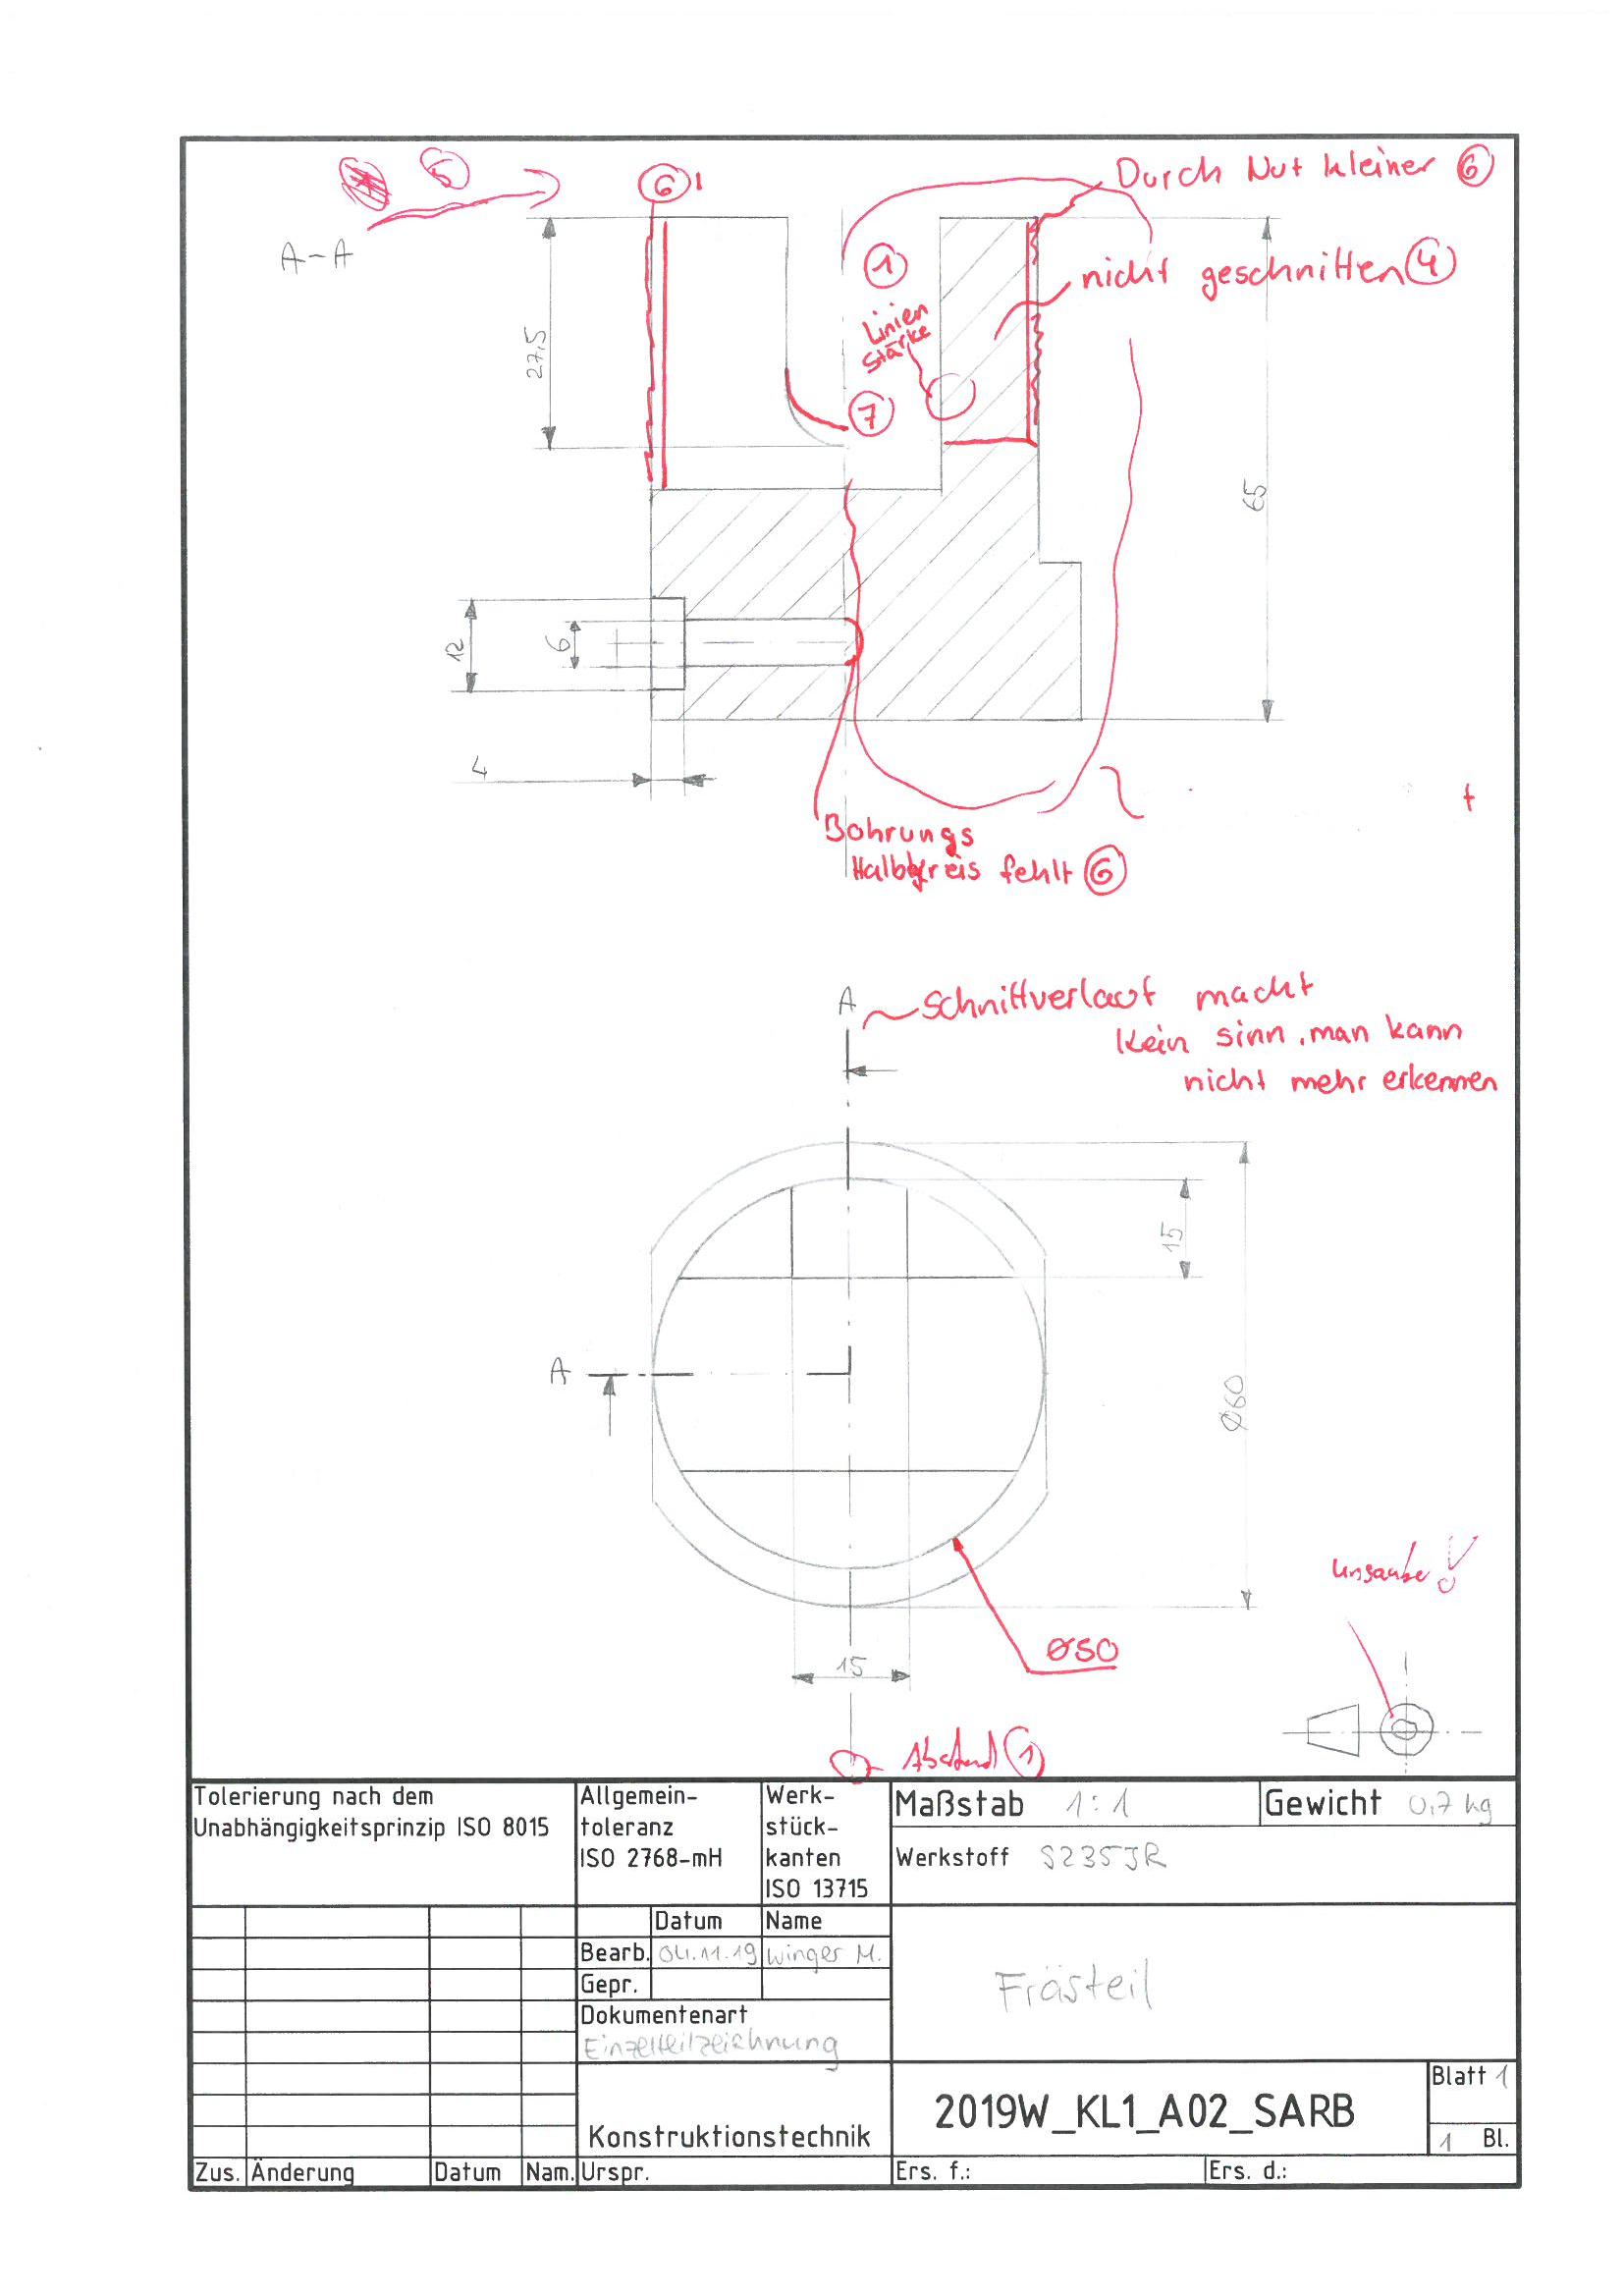 5
6
1
Durch Nut kleiner 6
A-A
1
nicht geschnitten 4
Linien
Stärke
27,5
7
65
12
6
4
Bohrungs
Halbkreis fehlt 6
A
Schnittverlauf macht
kein sinn, man kann
nicht mehr erkennen
15
A
Ø60
unsauber!
Ø50
15
Abstand 1
Tolerierung nach dem
Unabhängigkeitsprinzip ISO 8015
Allgemein-
toleranz
ISO 2768-mH
Werk-
stück-
kanten
ISO 13715
Maßstab 1:1
Gewicht 0,7 kg
Werkstoff S235JR
Datum Name
Bearb. 04.11.19 Winger M.
Gepr.
Dokumentenart
Einzelteilzeichnung
Frästeil
Konstruktionstechnik
2019W_KL1_A02_SARB
Blatt 1
1 Bl.
Zus. Änderung Datum Nam. Urspr. Ers. f.: Ers. d.: